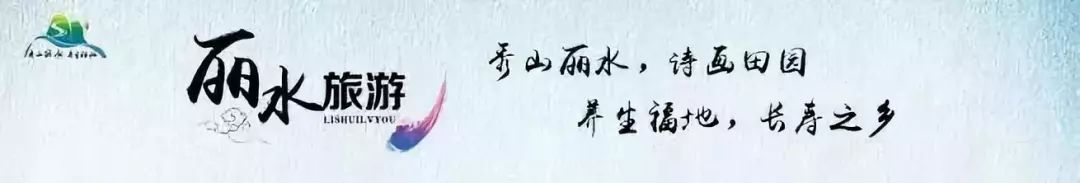 丽水旅游
LISHUILVYOU
秀山丽水，诗画田园
养生福地，长寿之乡